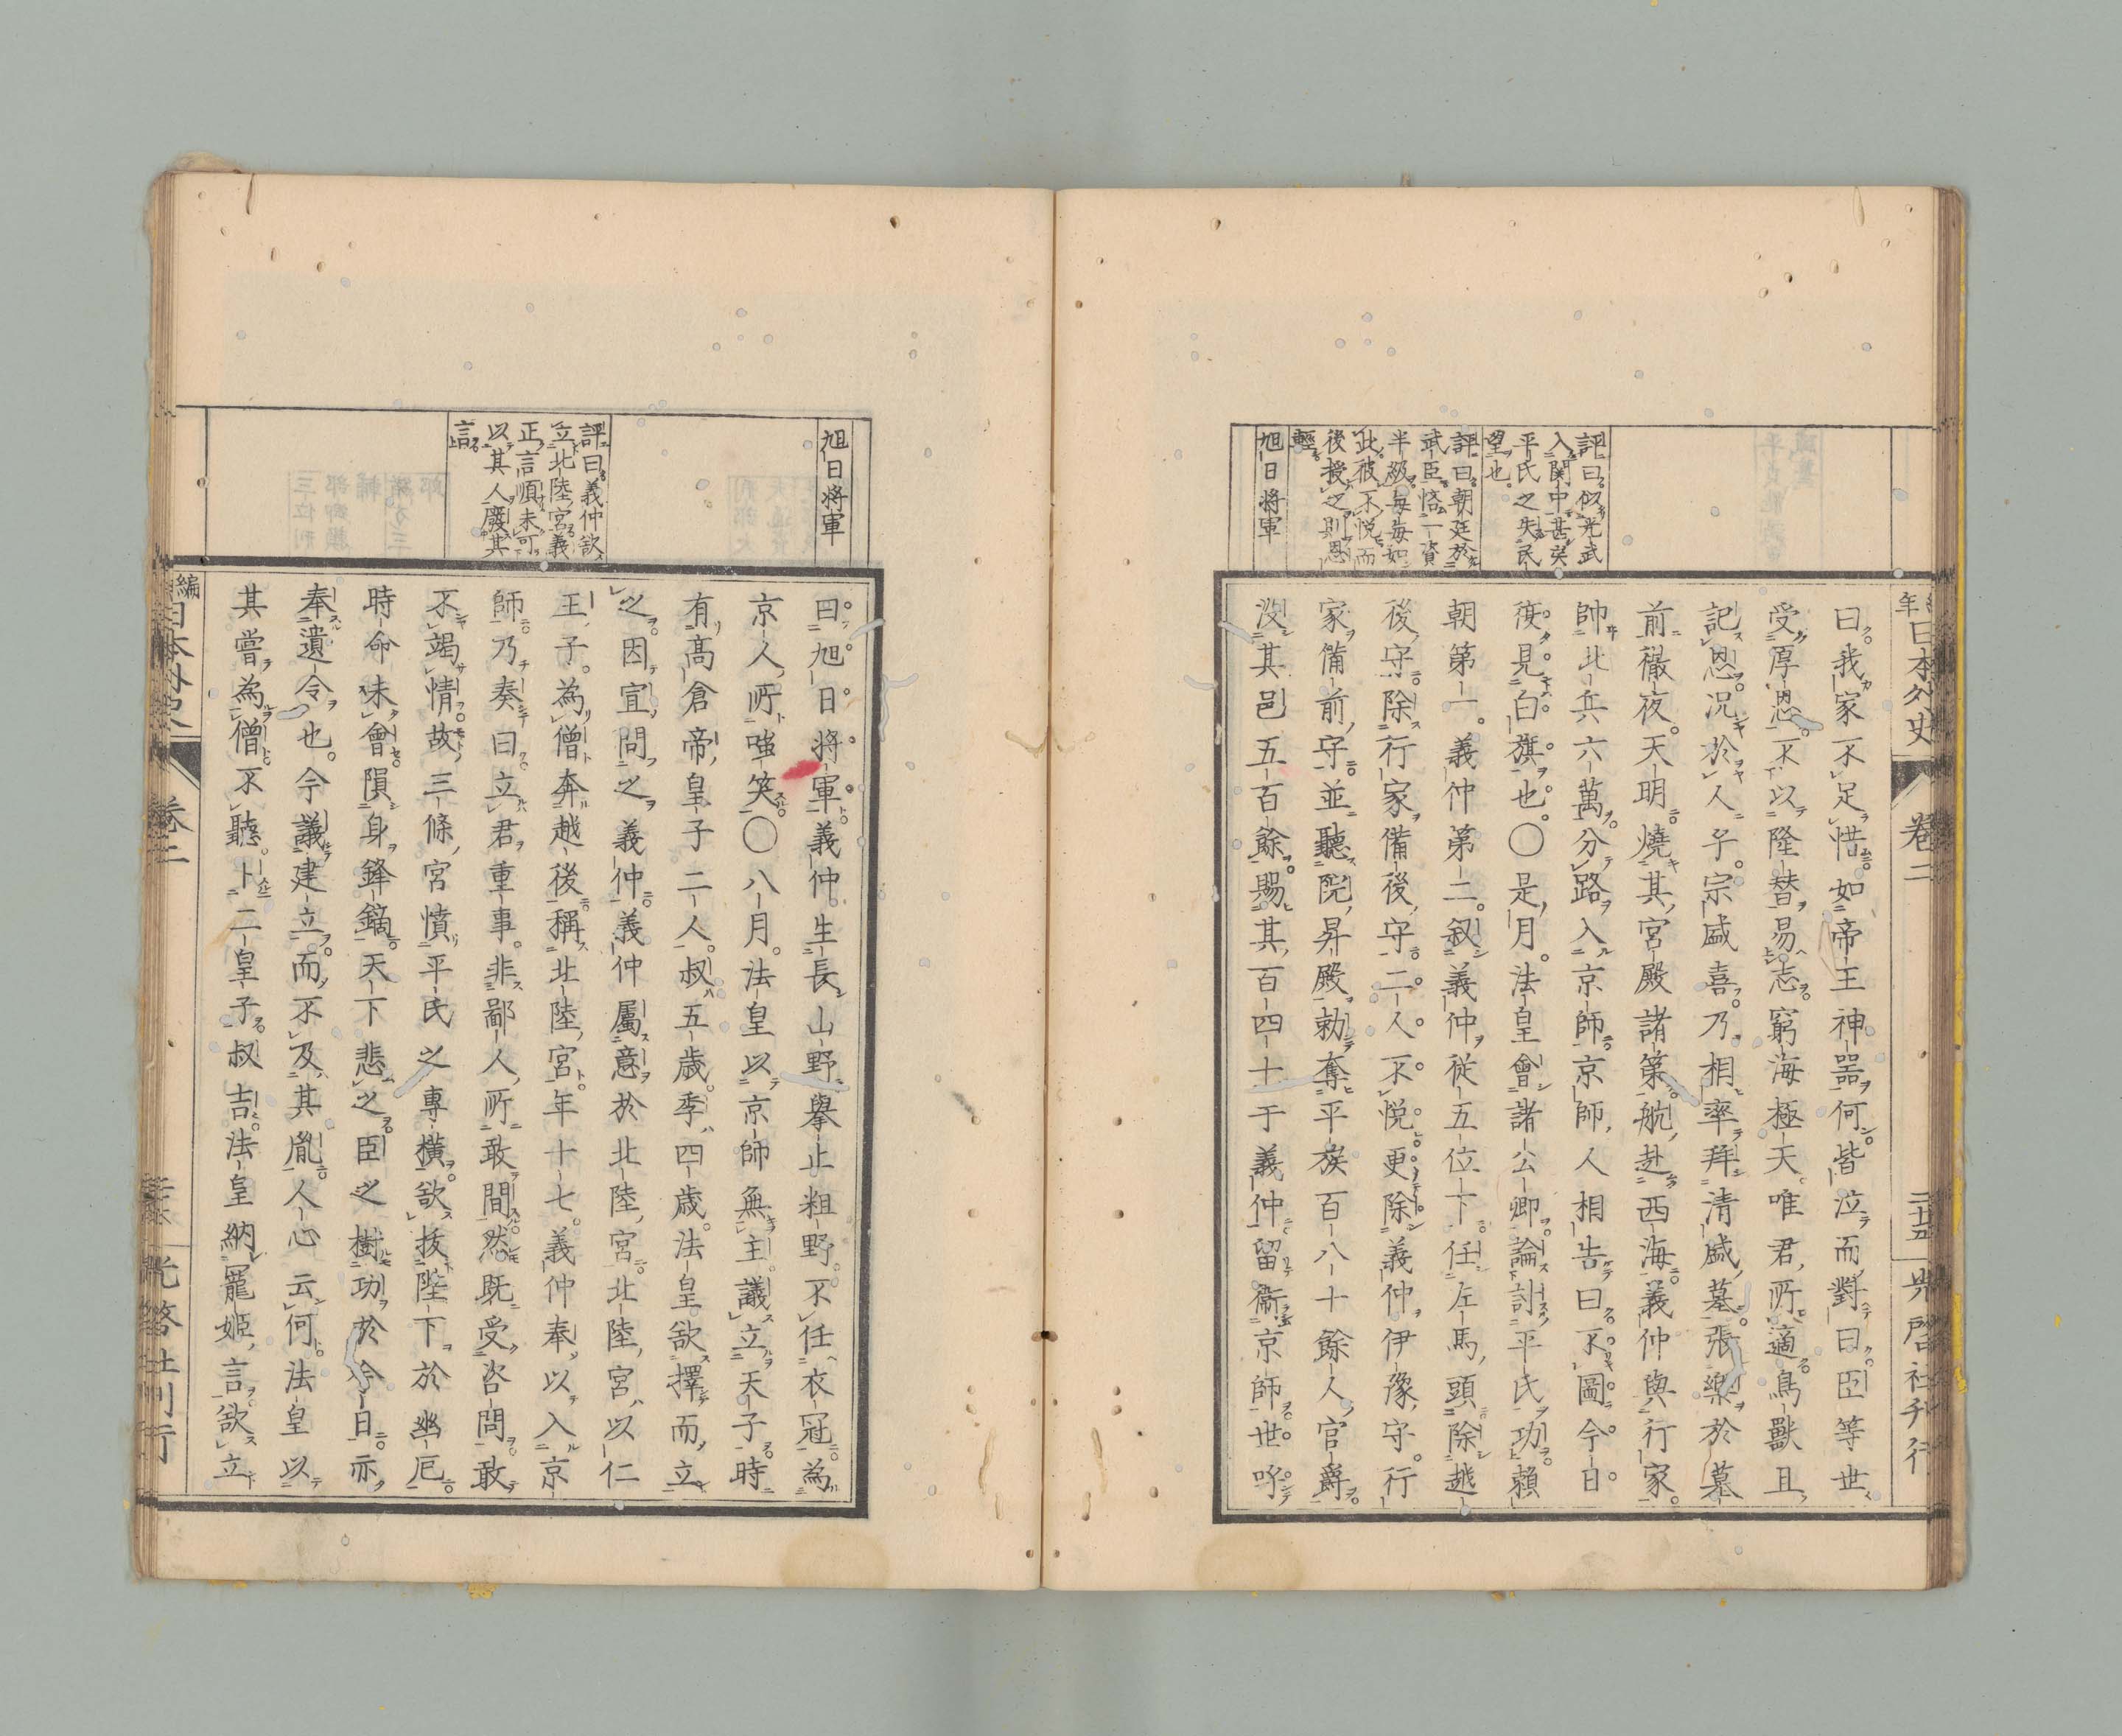 編年日本外史
卷二
二十五
光啓社刊行
評曰似光武
入關中甚矣
平氏之失民
望也
評曰朝廷於
武臣悋一資
半級每每如
此彼不悅而
後授之則恩
輕
旭日將軍
曰我家不足惜如帝王神器何皆泣而對曰臣等世
受厚恩不以隆替易志窮海極天唯君所適鳥獸且
記恩況於人乎宗盛喜乃相率拜清盛墓張樂於墓
前徹夜天明燒其宮殿諸第航赴西海義仲與行家
帥北兵六萬分路入京師京師人相告曰不圖今日
復見白旗也○是月法皇會諸公卿論討平氏功賴
朝第一義仲第二敍義仲從五位下任左馬頭除越
後守除行家備後守二人不悅更除義仲伊豫守行
家備前守並聽院昇殿勅奪平族百八十餘人官爵
沒其邑五百餘賜其百四十于義仲留衞京師世呼
旭日將軍
評曰義仲欲
立北陸宮義
正言順未可
以其人廢其
言
曰旭日將軍義仲生長山野擧止粗野不任衣冠為
京人所嗤笑○八月法皇以京師無主議立天子時
有高倉帝皇子二人叔五歲季四歲法皇欲擇而立
之因宣問之義仲義仲屬意於北陸宮北陸宮以仁
王子為僧奔越後稱北陸宮年十七義仲奉以入京
師乃奏曰立君重事非鄙人所敢間然既受咨問敢
不竭情故三條宮憤平氏之專橫欲拔陛下於幽厄
時命未會隕身鋒鏑天下悲之臣之樹功於今日亦
奉遺令也今議建立而不及其胤人心云何法皇以
其嘗為僧不聽卜二皇子叔吉法皇納寵姬言欲立
編年日本外史
卷二
光啓社刊行